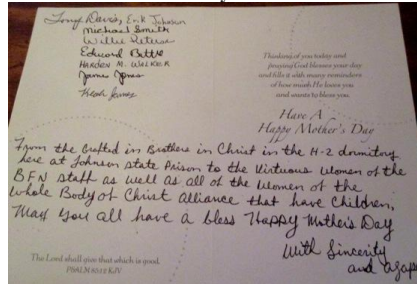 Tony Davis, Erik Johnson
Michael Smith
Willie
Edward Battle
HARDEN M. WALKER
James Jones
James
Thinking of you today and
praying God blesses your day
and fills it with many reminders
of how much He loves you
and wants to bless you.
Have A
Happy Mother's Day
From the Grafted in Brothers in Christ in the H-2 dormitory
here at Johnson State Prison to the Virtuous Women of the
BFN staff as well as all of the Women of the
Whole Body of Christ Alliance that have Children,
May you all have a bless Happy Mother's Day
With Sincerity
and agape
The Lord shall give that which is good.
PSALM 85:12 KJV